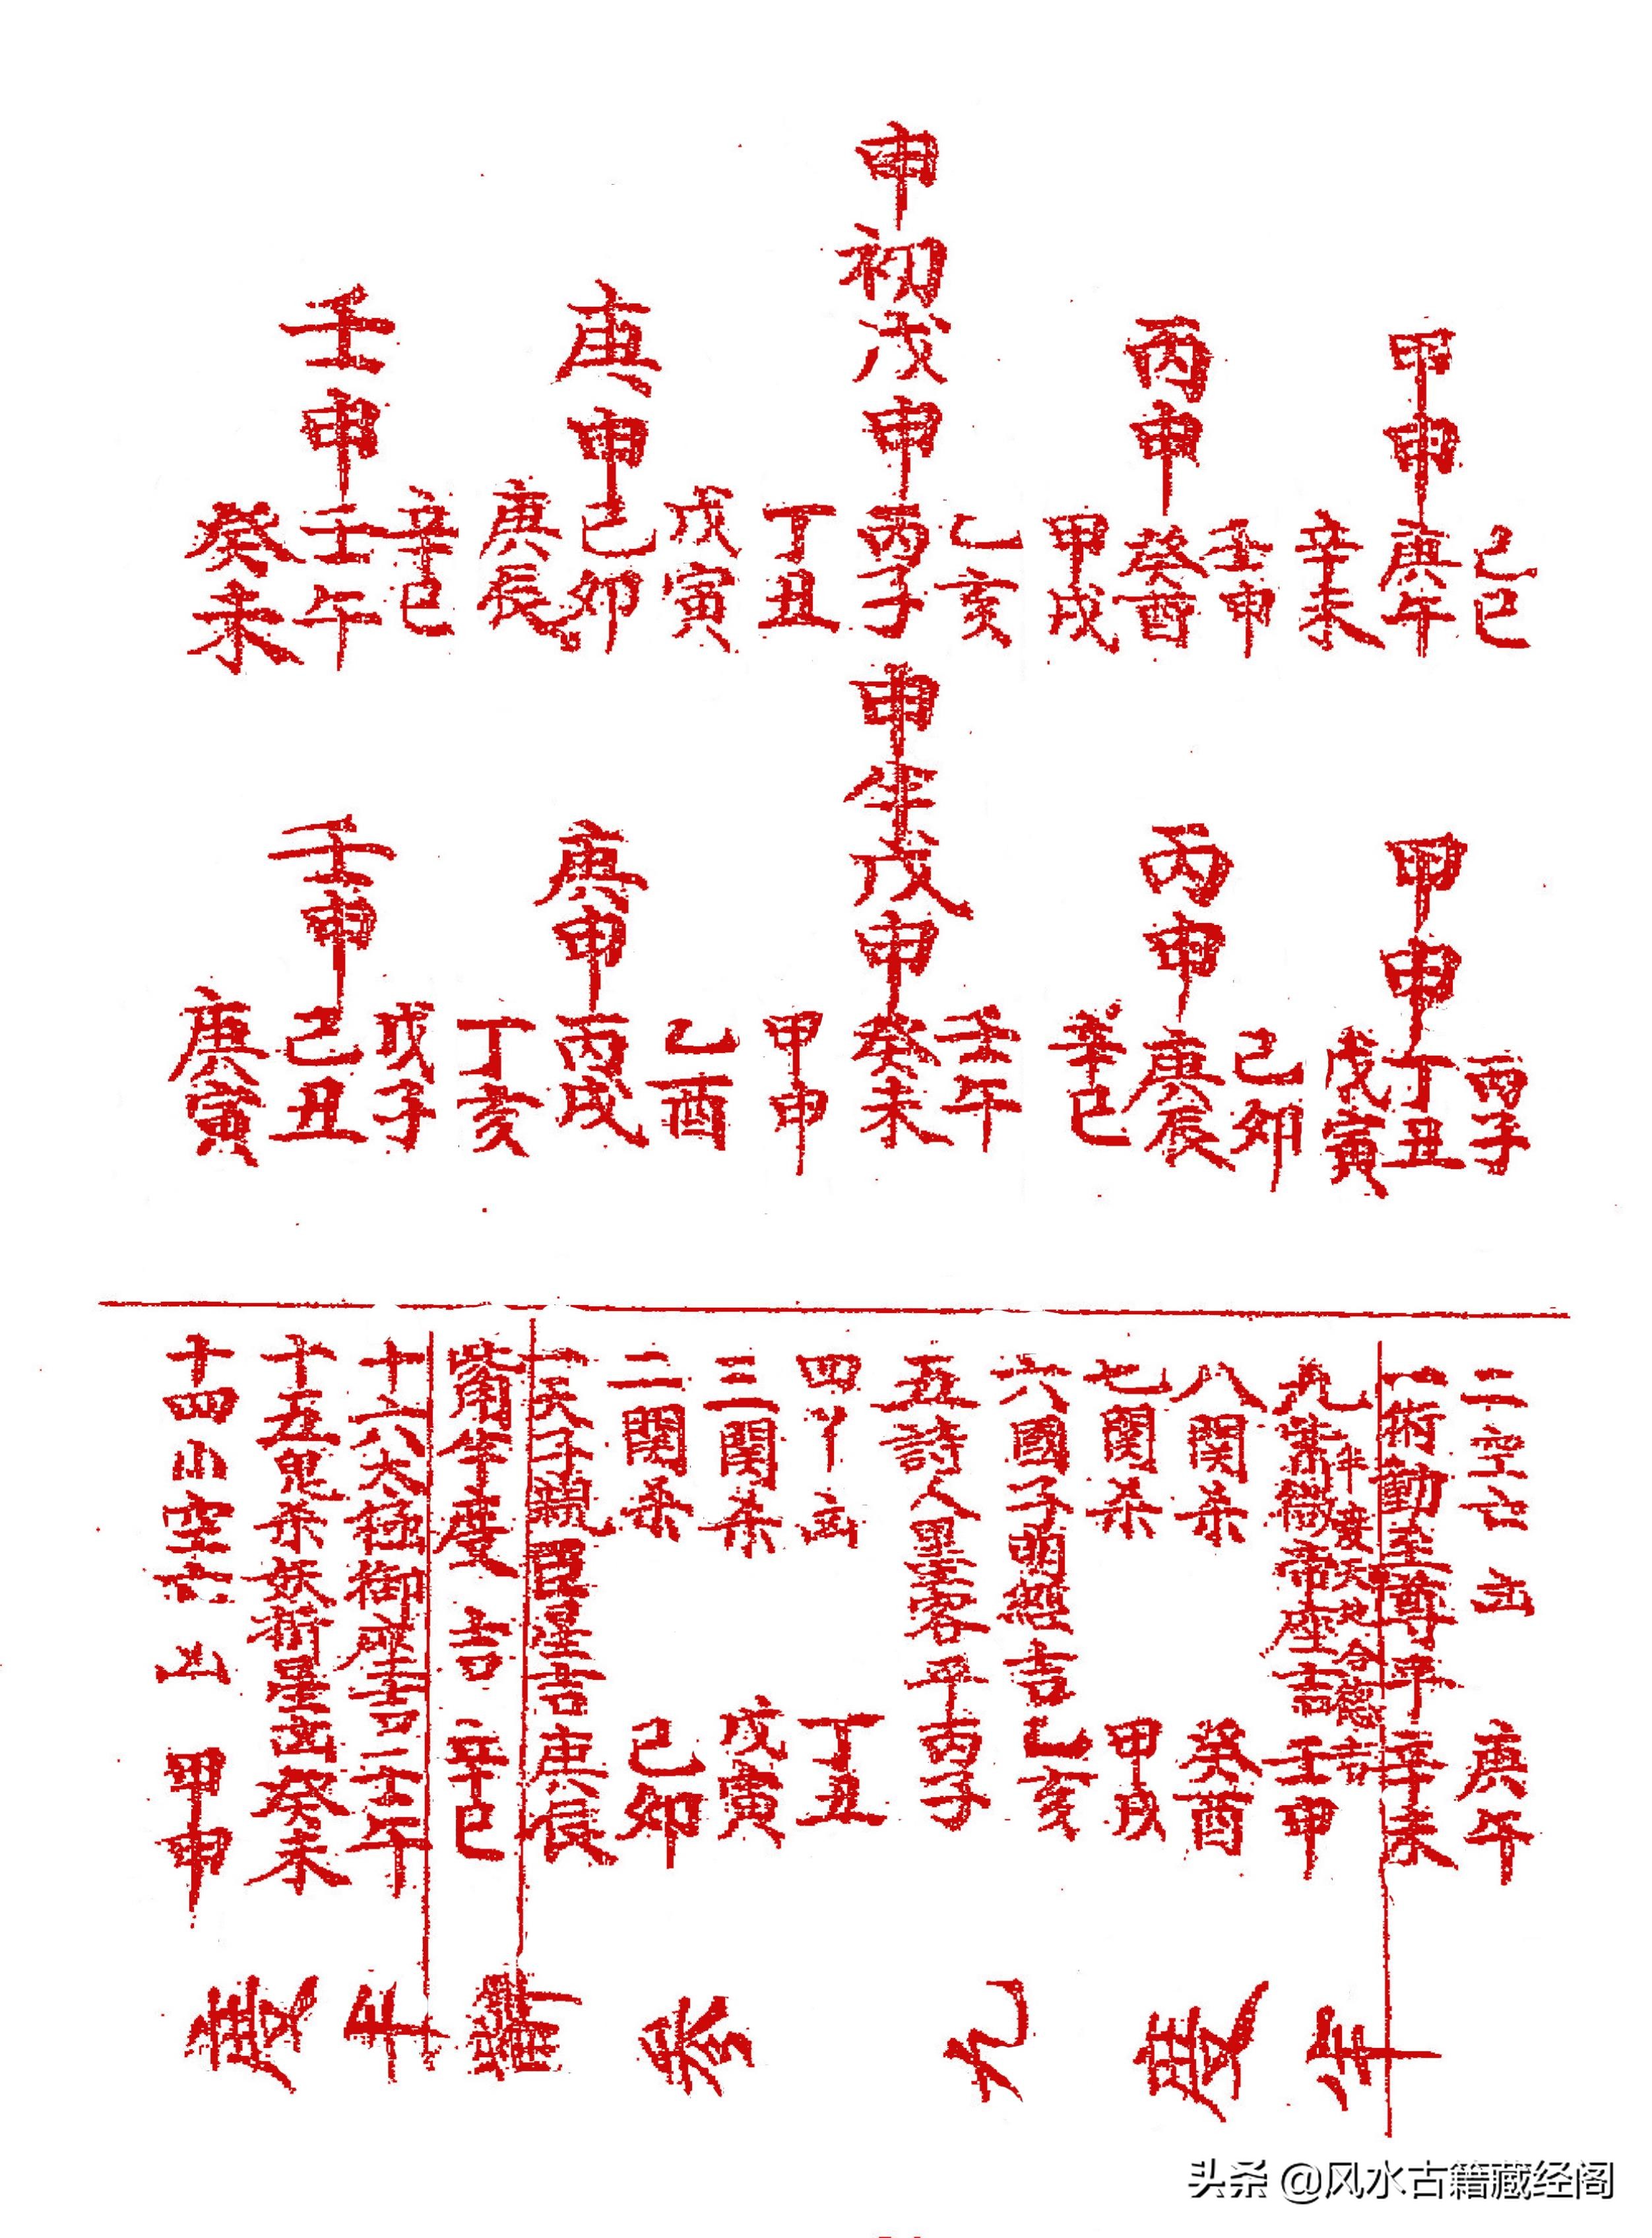 甲申
己巳
庚午
辛未
丙申
壬申
癸酉
甲戌
申初戊申
乙亥
丙子
丁丑
庚申
戊寅
己卯
庚辰
壬申
辛巳
壬午
癸未
甲申
丙子
丁丑
戊寅
丙申
己卯
庚辰
辛巳
申半戊申
壬午
癸未
甲申
庚申
乙酉
丙戌
丁亥
壬申
戊子
己丑
庚寅
二空亡 凶 庚午
一衝動至尊平辛未
半度天地合德吉
九紫微帝座吉壬申
八関杀 癸酉
七関杀 甲戌
六國子明經吉乙亥
五詩人墨客平丙子
四丫凶 丁丑
三関杀 戊寅
二関杀 己卯
一天子親星吉庚辰
觜半度 吉 辛巳
十六太極御座吉 壬午
十五鬼杀妖術星凶癸未
十四小空亡 凶 甲申
头条 @风水古籍藏经阁